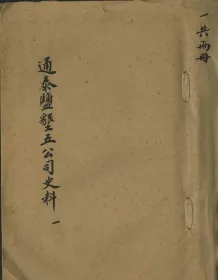 一共兩冊
通泰鹽墾五公司史料 一